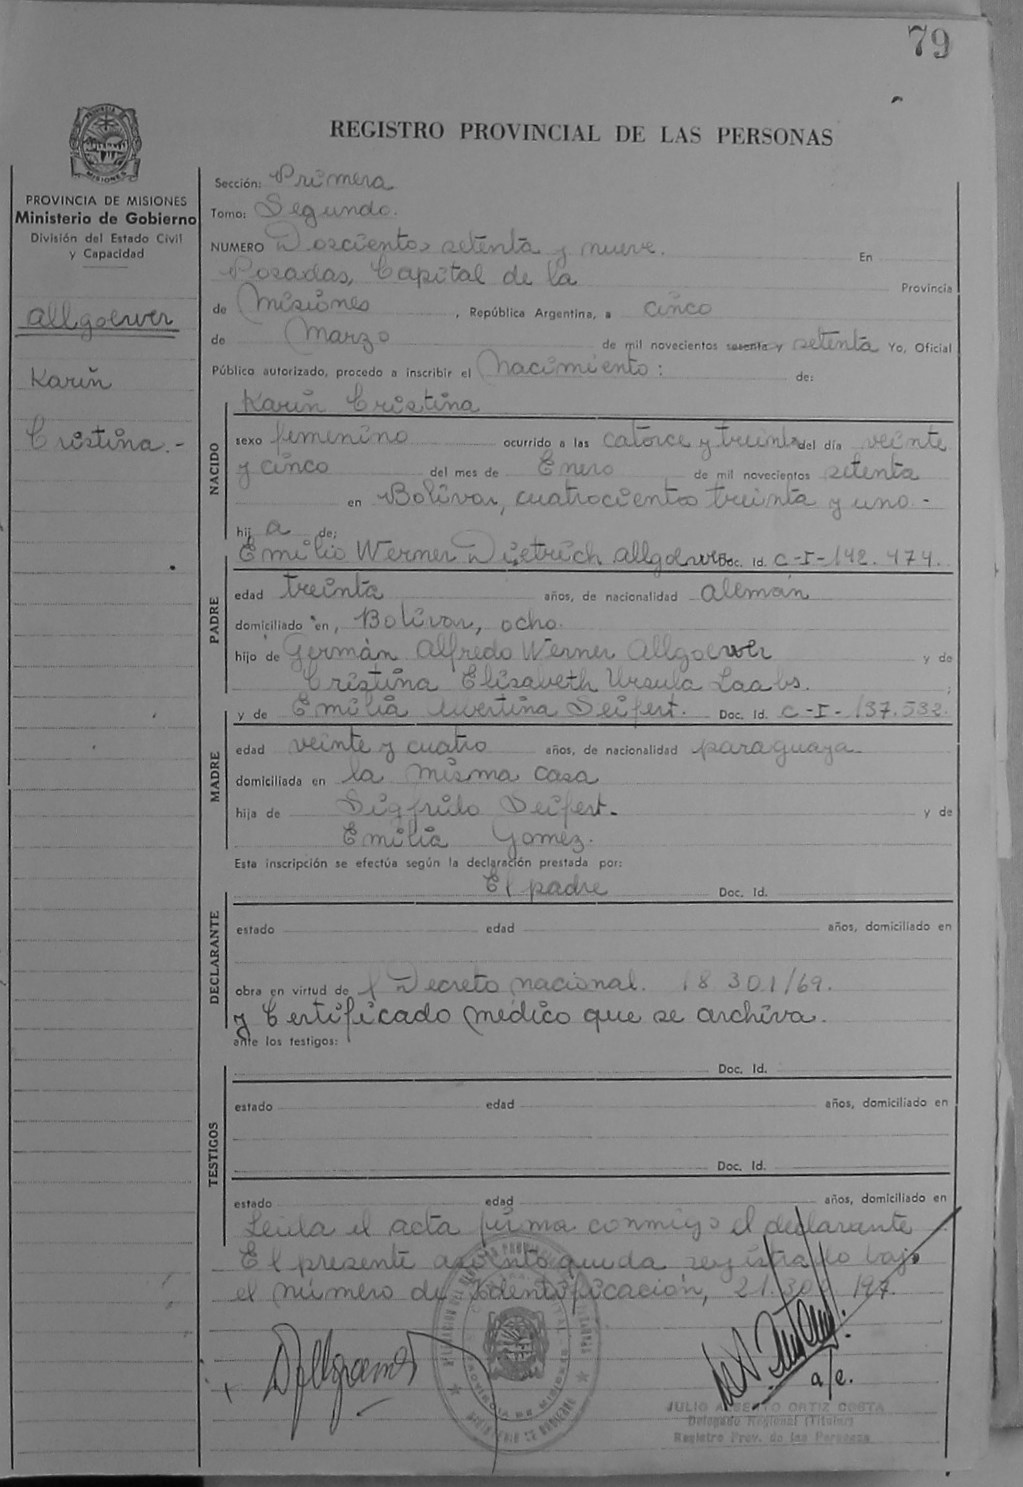 79
REGISTRO PROVINCIAL DE LAS PERSONAS
PROVINCIA DE MISIONES
Ministerio de Gobierno
División del Estado Civil
y Capacidad
Allgoewer
Karin
Cristina.-
Sección: Primera
Tomo: Segundo.
NUMERO Doscientos setenta y nueve. En
Posadas, Capital de la Provincia
de Misiones, República Argentina, a cinco
de Marzo de mil novecientos sesenta y setenta Yo, Oficial
Público autorizado, procedo a inscribir el Nacimiento: de:
Karin Cristina
NACIDO
sexo femenino ocurrido a las catorce y treinta del día veinte
y cinco del mes de Enero de mil novecientos setenta
en Bolívar, cuatrocientos treinta y uno.-
hij a de:
Emilio Werner Dietrich Allgoewer Doc. Id. C-I-142.474.
PADRE
edad treinta años, de nacionalidad alemán
domiciliado en, Bolívar, ocho.
hijo de Germán Alfredo Werner Allgoewer y de
Cristina Elisabeth Ursula Laabs.
y de Emilia Albertina Seifert. Doc. Id. C-I-137.532.
MADRE
edad veinte y cuatro años, de nacionalidad paraguaya
domiciliada en la misma casa
hija de Sigfrido Seifert. y de
Emilia Gomez.
Esta inscripción se efectúa según la declaración prestada por:
El padre Doc. Id.
DECLARANTE
estado edad años, domiciliado en
obra en virtud de l Decreto nacional. 18 301/69.
y Certificado médico que se archiva.
ante los testigos:
Doc. Id.
TESTIGOS
estado edad años, domiciliado en
Doc. Id.
estado edad años, domiciliado en
Leida el acta firma conmigo el declarante
El presente asiento queda registrado bajo
el número de Identificación, 21.30 197.
a/c.
JULIO ALBERTO ORTIZ COSTA
Delegado Regional (Titular)
Registro Prov. de las Personas